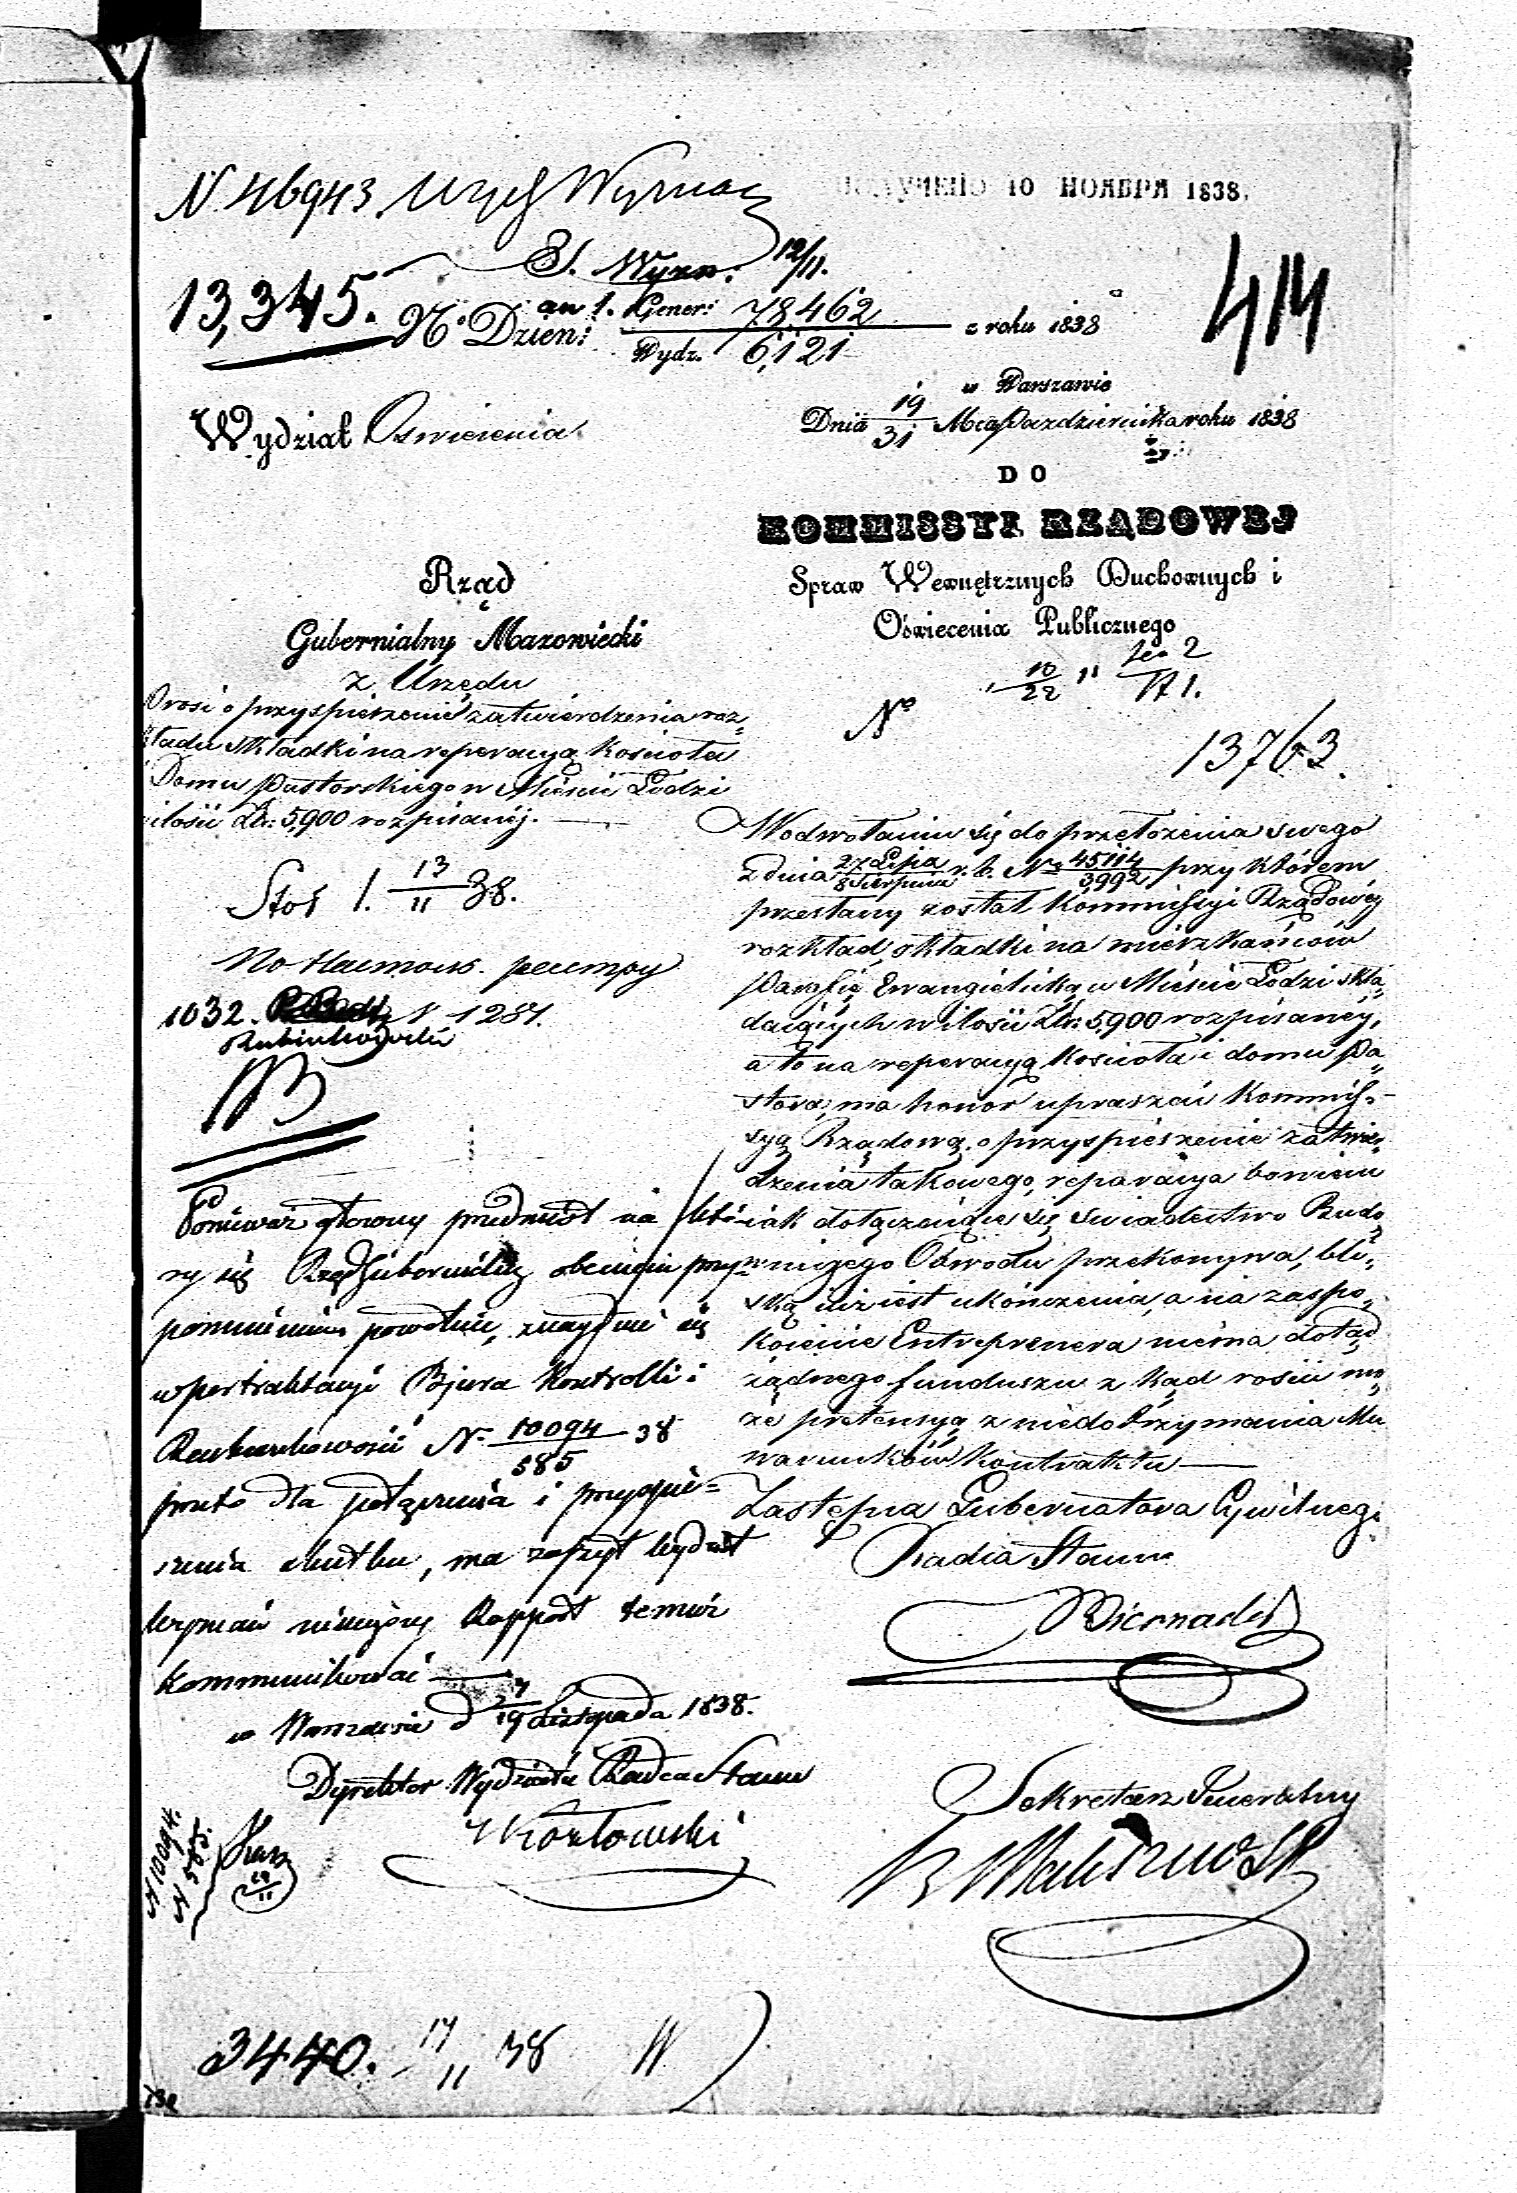 N. 46943.
ПОЛУЧЕНО 10 НОЯБРЯ 1838.
12/11.
13,345.
No Dzien: Gener: 78462 z roku 1838
Wydz. 6,121
414
w Warszawie
Dnia 19/31 Mca Pazdziernika roku 1838
Wydział Oswiecenia
DO
KOMMISSYI RZĄDOWEJ
Spraw Wewnętrznych Duchownych i
Oświecenia Publicznego
Rząd
Gubernialny Mazowiecki
z Urzędu
Prosi o przyspieszenie zatwierdzenia roz=
kładu składki na reperacyą Kościoła
i Domu Pastorskiego w Mieście Łodzi
w ilości Złr. 5,900 rozpisanéj.
10/22
No
13763.
13/11 38.
1032. N 1281.
W odwołaniu się do przełożenia swego
z dnia 27 Lipca/8 Sierpnia r. b. No 45114/3992 przy którem
przesłany został Kommissyi Rządowéy
rozkład składki na mieszkańców
Parafię Ewangielicką w Mieście Łodzi skła=
daiących w ilości Złr. 5,900 rozpisanéy,
a to na reperacyą Kościoła i domu Pa=
stora, ma honor upraszać Kommis=
syą Rządową o przyspieszenie zatwier=
dzenia takowego, reparacya bowiem
iak dołączaiące się świadectwo Budo=
wniczego Obwodu przekonywa, bli=
ską iuż iest ukończenia, a na zaspo=
koienie Entreprenera niéma dotąd
żądnego funduszu z kąd rościć mo=
że pretensyą z niedotrzymania Mu
warunków Kontraktu
Zastępca Gubernatora Cywilnego
Radca Stanu
Biernacki
Sekretarz Generalny
Ponieważ główny przedmiot na któ=
ry się Rząd Gubernialny obecnie przy=
pomnieniem powołuie, znayduie się
w pertraktacyi Bjura Kontrolli i
Rachunkowości N. 10094/585 38
przeto dla połączenia i przyspie=
szenia skutku, ma zaszczyt Wydział
Wyznań ninieyszy Rapport temuż
kommunikować
w Warszawie d 7/19 Listopada 1838.
Dyrektor Wydziału Radca Stanu
Kozłowski
N 10094.
N 585.
3440. 17/11 38